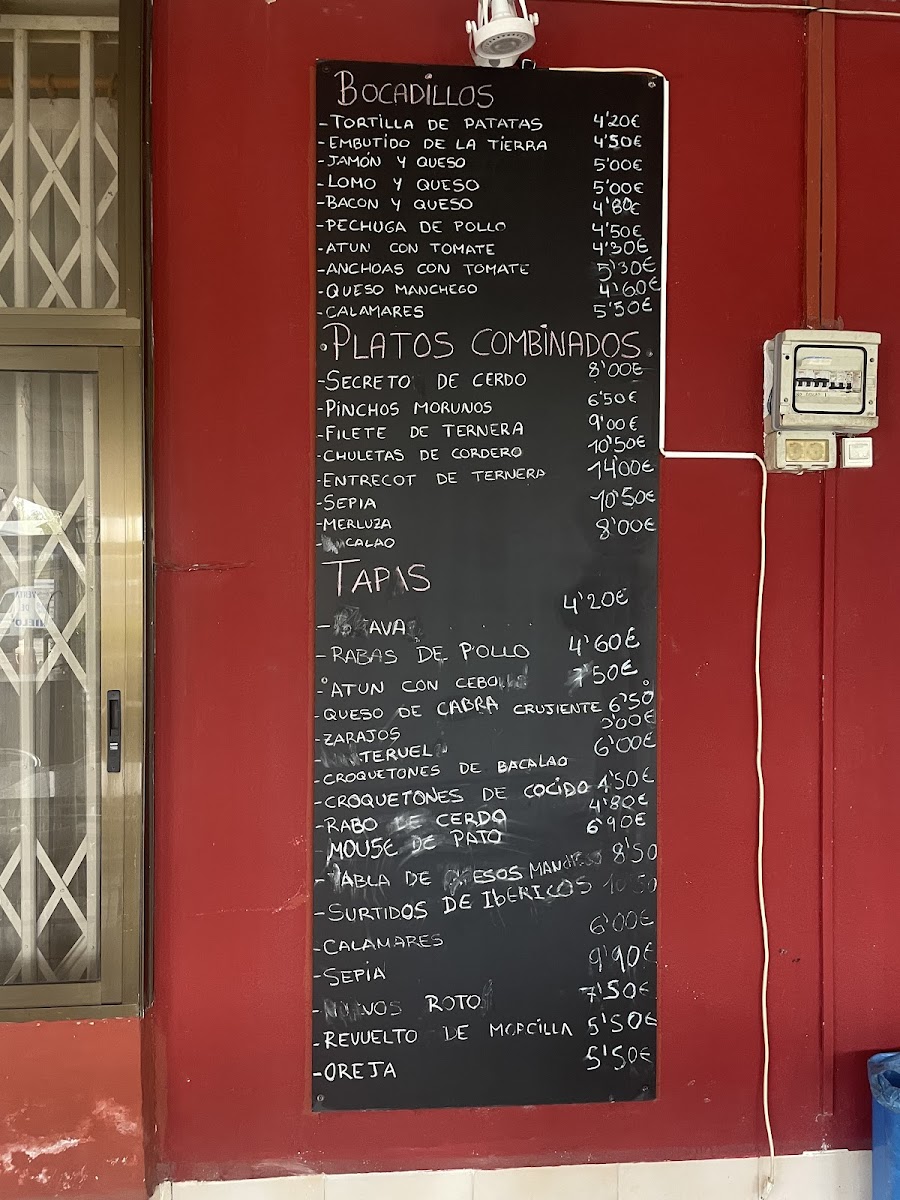 BOCADILLOS
-TORTILLA DE PATATAS 4'20€
-EMBUTIDO DE LA TIERRA 4'50€
-JAMÓN Y QUESO 5'00€
-LOMO Y QUESO 5'00€
-BACON Y QUESO 4'80€
-PECHUGA DE POLLO 4'50€
-ATUN CON TOMATE 4'30€
-ANCHOAS CON TOMATE 5'30€
-QUESO MANCHEGO 4'60€
-CALAMARES 5'50€
·PLATOS COMBINADOS.
-SECRETO DE CERDO 8'00€
-PINCHOS MORUNOS 6'50€
-FILETE DE TERNERA 9'00€
-CHULETAS DE CORDERO 10'50€
-ENTRECOT DE TERNERA 14'00€
-SEPIA 10'50€
-MERLUZA 8'00€
TAPAS
4'20€
-RABAS DE POLLO 4'60€
-ATUN CON 7'50€
-QUESO DE CABRA CRUJIENTE 6'50
-ZARAJOS
TERUEL 6'00€
-CROQUETONES DE BACALAO
-CROQUETONES DE COCIDO 4'50€
-RABO DE CERDO 4'80€
-MOUSE DE PATO 6'90€
-TABLA DE 8'50
-SURTIDOS DE IBERICOS 10'50
-CALAMARES 6'00€
-SEPIA 9'90€
7'50€
-REVUELTO DE MORCILLA 5'50€
-OREJA 5'50€